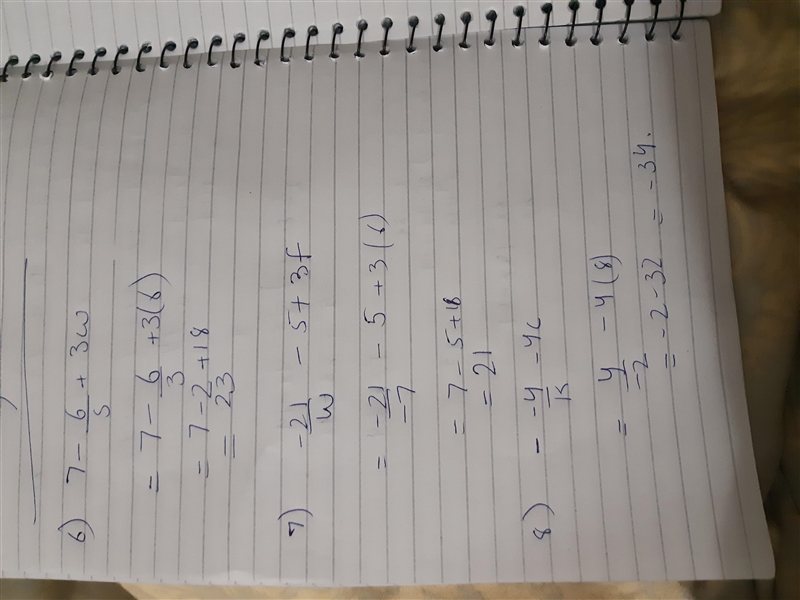 6) 7 - 6/s + 3w
= 7 - 6/3 + 3(6)
= 7 - 2 + 18
= 23
7) -21/w - 5 + 3f
= -21/-7 - 5 + 3(6)
= 7 - 5 + 18
= 21
8) - -4/k - 4c
= 4/-2 - 4(8)
= -2 - 32 = -34.